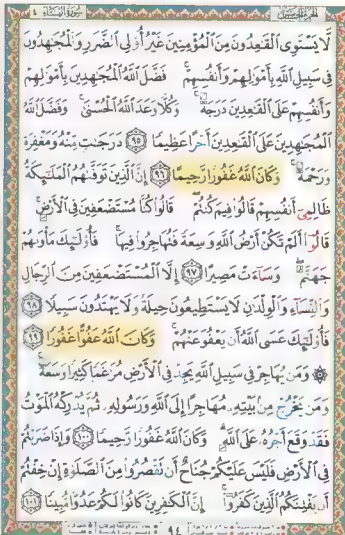 سورة النساء ٤
لَّا يَسْتَوِى الْقَٰعِدُونَ مِنَ الْمُؤْمِنِينَ غَيْرُ أُو۟لِى الضَّرَرِ وَالْمُجَٰهِدُونَ
فِى سَبِيلِ اللَّهِ بِأَمْوَٰلِهِمْ وَأَنفُسِهِمْ ۚ فَضَّلَ اللَّهُ الْمُجَٰهِدِينَ بِأَمْوَٰلِهِمْ
وَأَنفُسِهِمْ عَلَى الْقَٰعِدِينَ دَرَجَةً ۚ وَكُلًّا وَعَدَ اللَّهُ الْحُسْنَىٰ ۚ وَفَضَّلَ اللَّهُ
الْمُجَٰهِدِينَ عَلَى الْقَٰعِدِينَ أَجْرًا عَظِيمًا ٩٥ دَرَجَٰتٍ مِّنْهُ وَمَغْفِرَةً
وَرَحْمَةً ۚ وَكَانَ اللَّهُ غَفُورًا رَّحِيمًا ٩٦ إِنَّ الَّذِينَ تَوَفَّىٰهُمُ الْمَلَٰٓئِكَةُ
ظَالِمِىٓ أَنفُسِهِمْ قَالُوا۟ فِيمَ كُنتُمْ ۖ قَالُوا۟ كُنَّا مُسْتَضْعَفِينَ فِى الْأَرْضِ ۚ
قَالُوٓا۟ أَلَمْ تَكُنْ أَرْضُ اللَّهِ وَٰسِعَةً فَتُهَاجِرُوا۟ فِيهَا ۚ فَأُو۟لَٰٓئِكَ مَأْوَىٰهُمْ
جَهَنَّمُ ۖ وَسَآءَتْ مَصِيرًا ٩٧ إِلَّا الْمُسْتَضْعَفِينَ مِنَ الرِّجَالِ
وَالنِّسَآءِ وَالْوِلْدَٰنِ لَا يَسْتَطِيعُونَ حِيلَةً وَلَا يَهْتَدُونَ سَبِيلًا ٩٨
فَأُو۟لَٰٓئِكَ عَسَى اللَّهُ أَن يَعْفُوَ عَنْهُمْ ۚ وَكَانَ اللَّهُ عَفُوًّا غَفُورًا ٩٩
۞ وَمَن يُهَاجِرْ فِى سَبِيلِ اللَّهِ يَجِدْ فِى الْأَرْضِ مُرَٰغَمًا كَثِيرًا وَسَعَةً ۚ
وَمَن يَخْرُجْ مِنۢ بَيْتِهِۦ مُهَاجِرًا إِلَى اللَّهِ وَرَسُولِهِۦ ثُمَّ يُدْرِكْهُ الْمَوْتُ
فَقَدْ وَقَعَ أَجْرُهُۥ عَلَى اللَّهِ ۗ وَكَانَ اللَّهُ غَفُورًا رَّحِيمًا ١٠٠ وَإِذَا ضَرَبْتُمْ
فِى الْأَرْضِ فَلَيْسَ عَلَيْكُمْ جُنَاحٌ أَن تَقْصُرُوا۟ مِنَ الصَّلَوٰةِ إِنْ خِفْتُمْ
أَن يَفْتِنَكُمُ الَّذِينَ كَفَرُوٓا۟ ۚ إِنَّ الْكَٰفِرِينَ كَانُوا۟ لَكُمْ عَدُوًّا مُّبِينًا ١٠١
٩٤